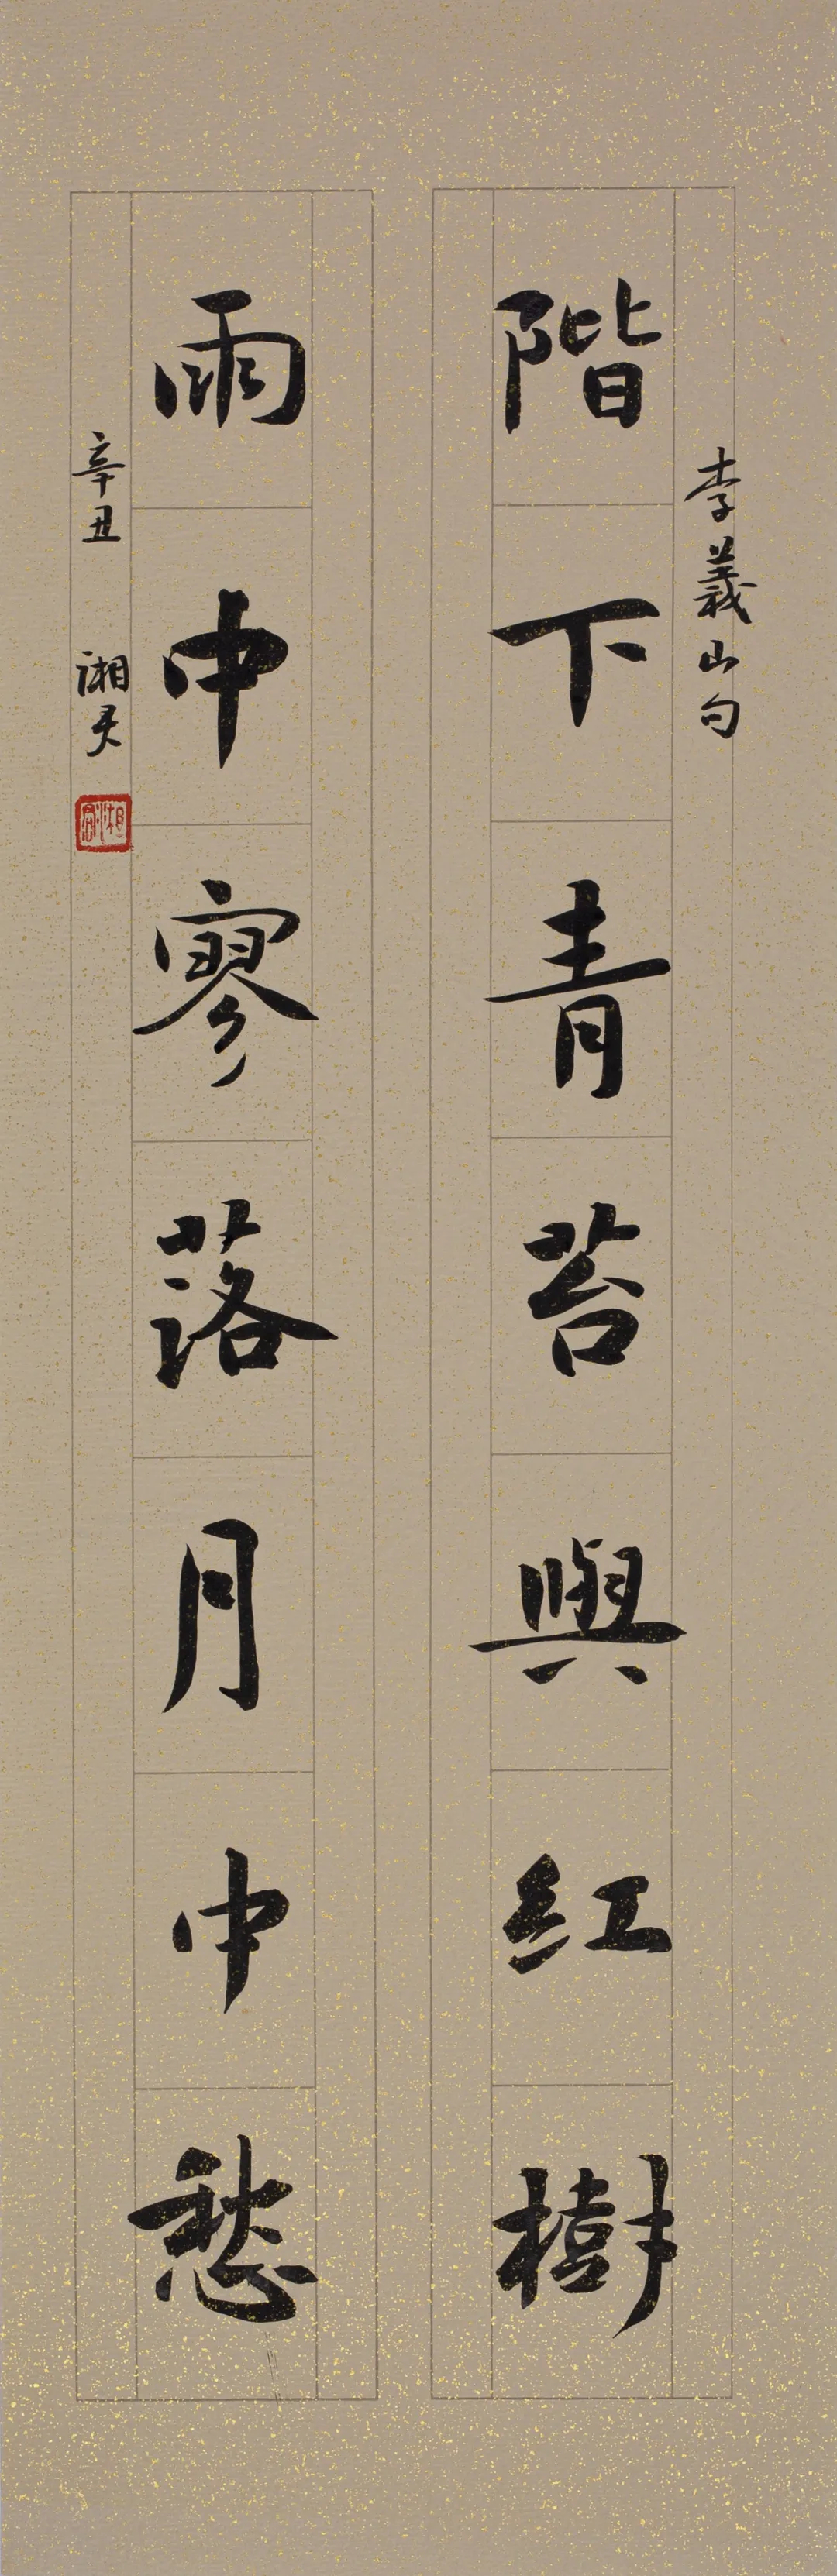 李義山句
階下青苔與紅樹
雨中寥落月中愁
辛丑
湘君